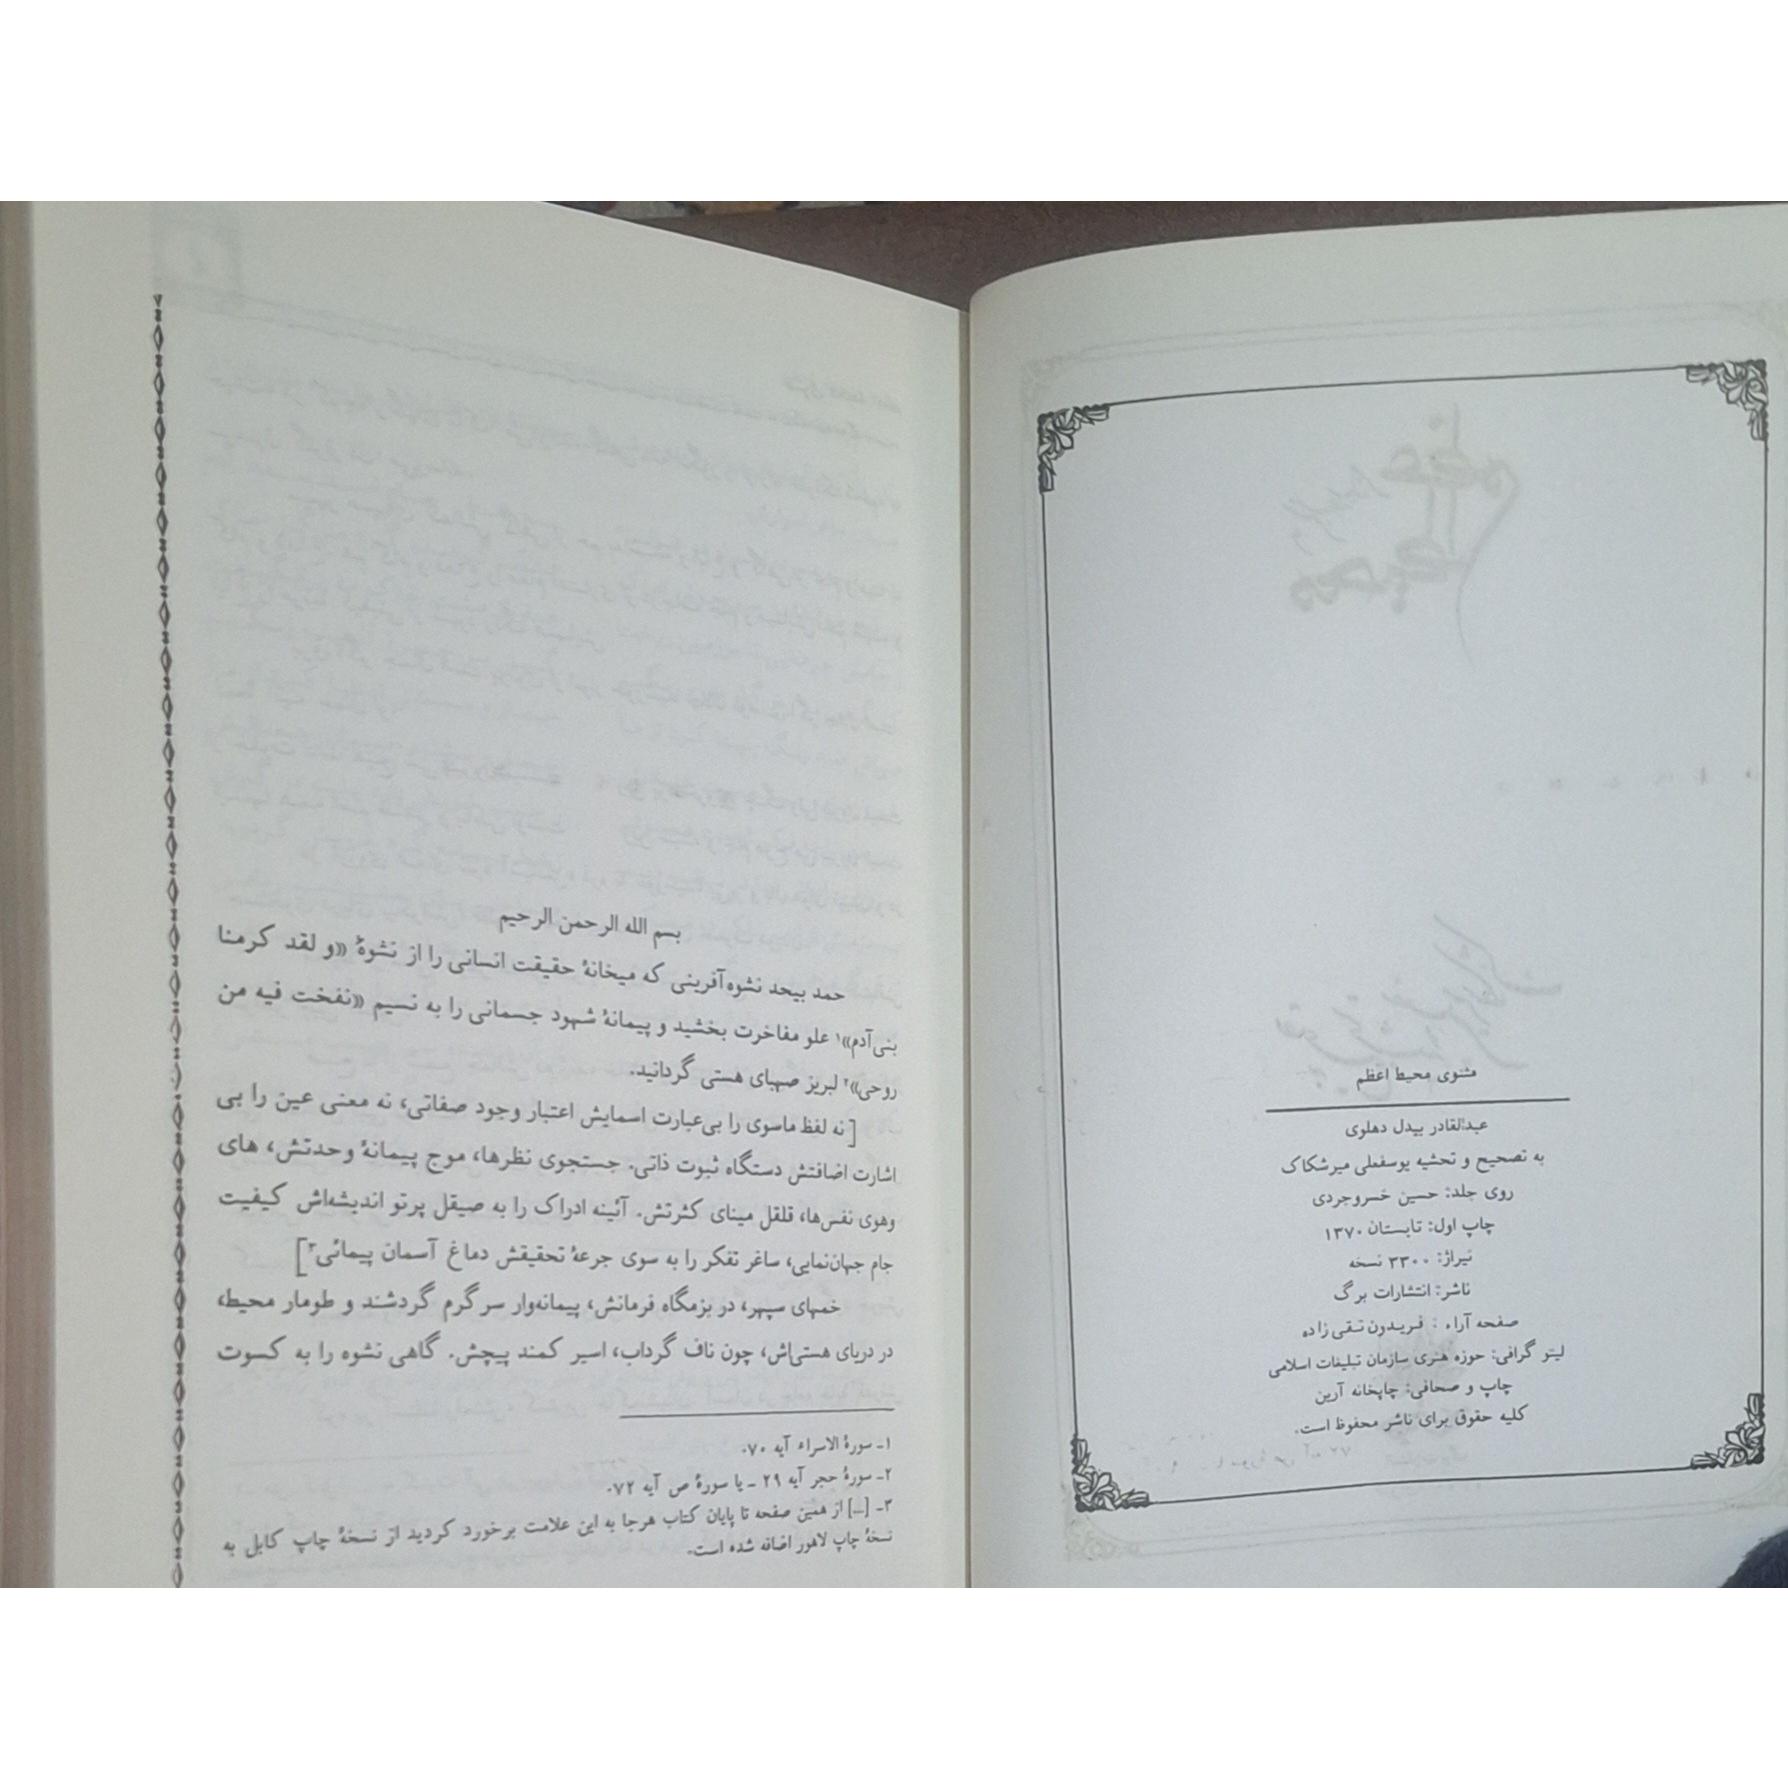 مثنوی محیط اعظم
عبدالقادر بیدل دهلوی
به تصحیح و تحشیه یوسفعلی میرشکاک
روی جلد: حسین خسروجردی
چاپ اول: تابستان ۱۳۷۰
تیراژ: ۳۳۰۰ نسخه
ناشر: انتشارات برگ
صفحه آراء : فریدون تقی زاده
لیتو گرافی: حوزه هنری سازمان تبلیغات اسلامی
چاپ و صحافی: چاپخانه آرین
کلیه حقوق برای ناشر محفوظ است.
بسم الله الرحمن الرحیم
حمد بیحد نشوه‌آفرینی که میخانهٔ حقیقت انسانی را از نشوهٔ «و لقد کرمنا
بنی‌آدم»۱ علو مفاخرت بخشید و پیمانهٔ شهود جسمانی را به نسیم «نفخت فیه من
روحی»۲ لبریز صهبای هستی گردانید.
[نه لفظ ماسوی را بی‌عبارت اسمایش اعتبار وجود صفاتی، نه معنی عین را بی
اشارت اضافتش دستگاه ثبوت ذاتی. جستجوی نظرها، موج پیمانهٔ وحدتش، های
وهوی نفس‌ها، قلقل مینای کثرتش. آئینه ادراک را به صیقل پرتو اندیشه‌اش کیفیت
جام جهان‌نمایی، ساغر تفکر را به سوی جرعهٔ تحقیقش دماغ آسمان پیمائی۳]
خمهای سپهر، در بزمگاه فرمانش، پیمانه‌وار سرگرم گردشند و طومار محیط،
در دریای هستی‌اش، چون ناف گرداب، اسیر کمند پیچش. گاهی نشوه را به کسوت
۱ـ سورهٔ الاسراء آیه ۷۰.
۲ـ سورهٔ حجر آیه ۲۹ ـ یا سورهٔ ص آیه ۷۲.
۳ـ [...] از همین صفحه تا پایان کتاب هرجا به این علامت برخورد کردید از نسخهٔ چاپ کابل به
نسخهٔ چاپ لاهور اضافه شده است.